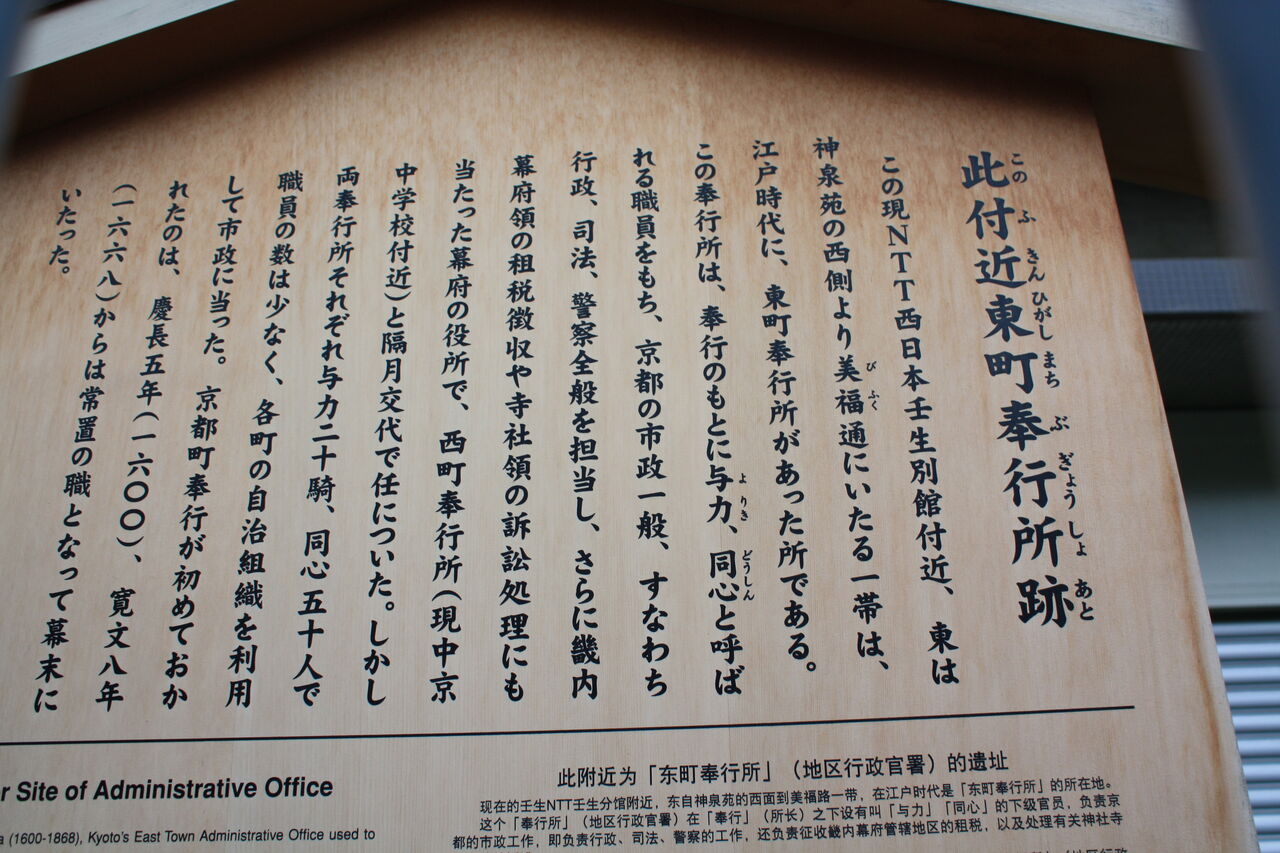 此付近東町奉行所跡
このふきんひがしまちぶぎょうしょあと
この現NTT西日本壬生別館付近、東は
神泉苑の西側より美福通にいたる一帯は、
びふく
江戸時代に、東町奉行所があった所である。
この奉行所は、奉行のもとに与力、同心と呼ば
よりき
どうしん
れる職員をもち、京都の市政一般、すなわち
行政、司法、警察全般を担当し、さらに畿内
幕府領の租税徴収や寺社領の訴訟処理にも
当たった幕府の役所で、西町奉行所(現中京
中学校付近)と隔月交代で任についた。しかし
両奉行所それぞれ与力二十騎、同心五十人で
職員の数は少なく、各町の自治組織を利用
して市政に当った。京都町奉行が初めておか
れたのは、慶長五年(一六〇〇)、寛文八年
(一六六八)からは常置の職となって幕末に
いたった。
r Site of Administrative Office
a (1600-1868), Kyoto's East Town Administrative Office used to
此附近为「东町奉行所」(地区行政官署)的遗址
现在的壬生NTT壬生分馆附近，东自神泉苑的西面到美福路一带，在江户时代是「东町奉行所」的所在地。
这个「奉行所」(地区行政官署)在「奉行」(所长)之下设有叫「与力」「同心」的下级官员，负责京
都的市政工作，即负责行政、司法、警察的工作，还负责征收畿内幕府管辖地区的租税，以及处理有关神社寺